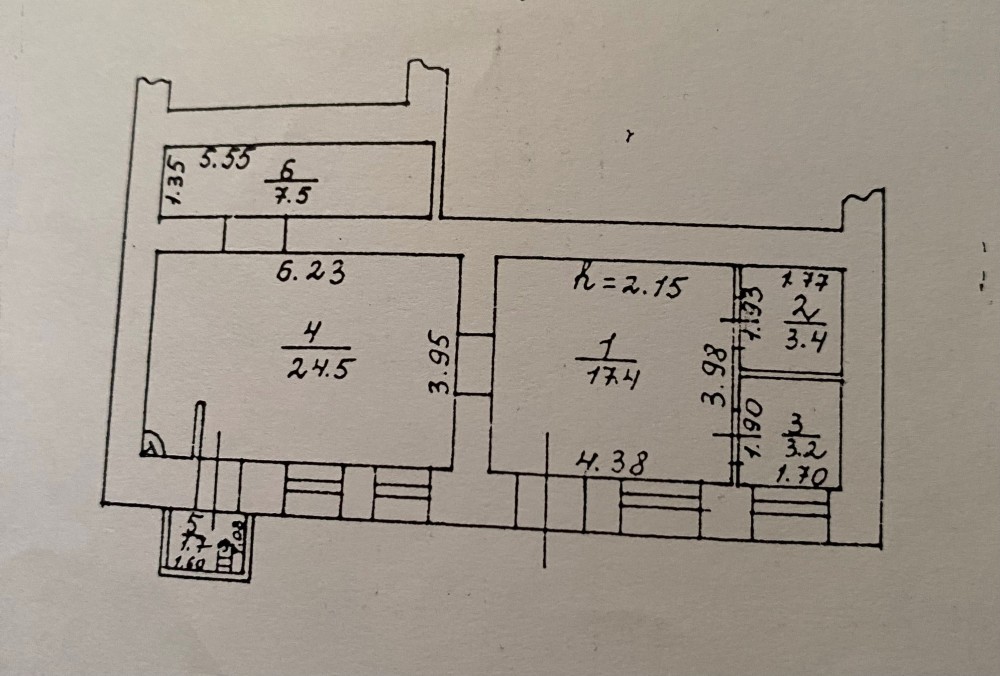 5.55
1.35
6
7.5
6.23
h = 2.15
1.77
1.93
2
3.4
4
24.5
3.95
1
17.4
3.98
1.90
3
3.2
1.70
4.38
5
1.7
1.08
1.60